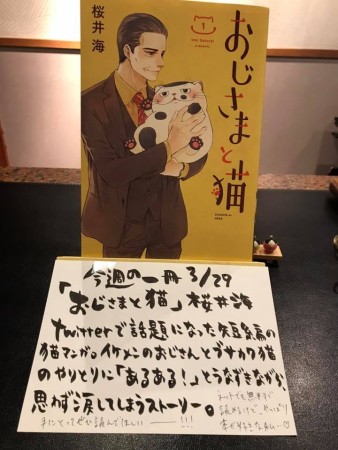 桜井海
1
おじさまと猫
今週の一冊 3/29
「おじさまと猫」桜井海
twitterで話題になった短編の
猫マンガ。イケメンのおじさんとブサカワ猫
のやりとりに「あるある!」とうなずきながら、
思わず涙してしまうストーリー。
ネットでも無料で
読めるけど、やっぱり
手にとってぜひ読んでほしい ― !!!